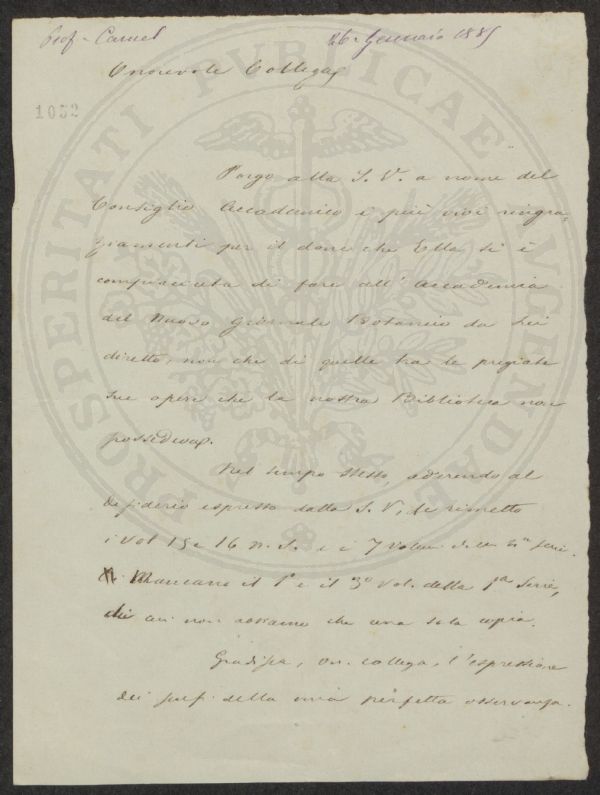 Prof. Caruel 26 Gennaio 1885
Onorevole Collega
1052
PROSPERITATI PVBLICAE AVGENDAE
Porgo alla S. V. a nome del
Consiglio Accademico i più vivi ringra-
ziamenti per il dono che Ella si è
compiaciuta di fare all'Accademia
del Nuovo Giornale Botanico da Lei
diretto, non che di quelle tra le pregiate
Sue opere che la nostra Biblioteca non
possedeva.
Nel tempo stesso, aderendo al
desiderio espresso dalla S. V., Le rimetto
i Vol 15 e 16 N. S. e i 7 Volumi della serie.
Mancano il 1° e il 3° Vol. della 1ª Serie,
di cui non abbiamo che una sola copia.
Gradisca, On. Collega, l'espressione
dei della mia perfetta osservanza.